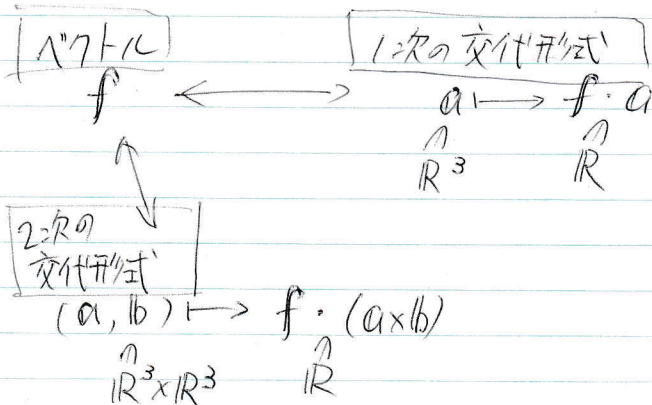 ベクトル
1次の交代形式
f ⟷ a ↦ f・a
∩ ∩
ℝ³ ℝ
2次の
交代形式
(a, b) ↦ f・(a×b)
∩ ∩
ℝ³×ℝ³ ℝ